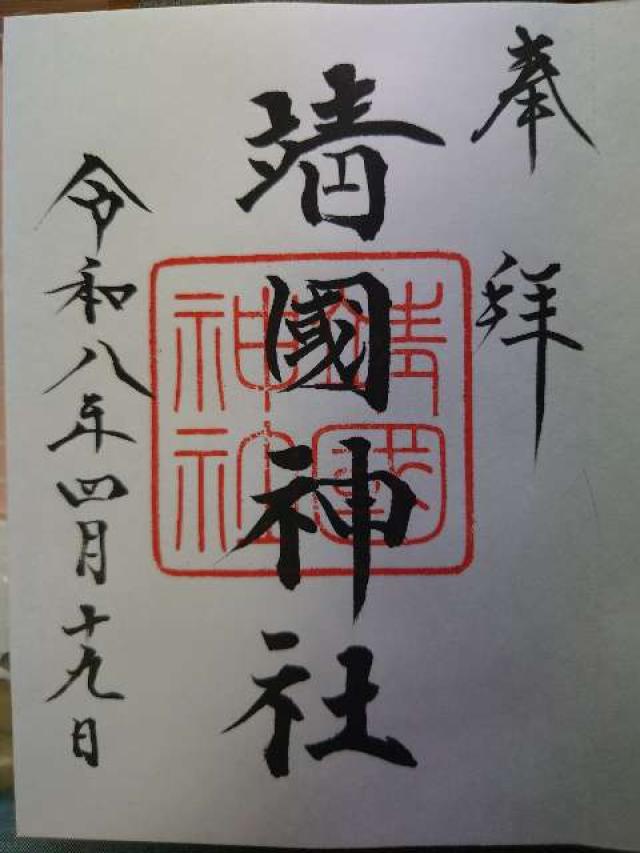 奉拝
靖國神社
靖國神社
令和八年四月十九日